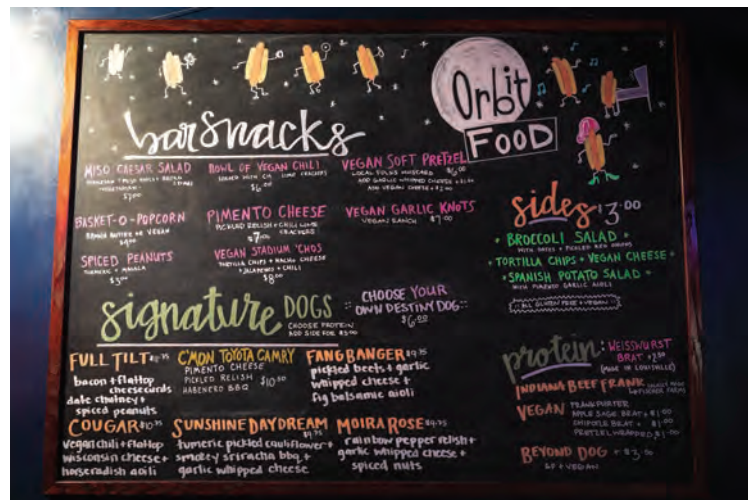 Orbit
FOOD
bar snacks
MISO CAESAR SALAD
$7.00
BOWL OF VEGAN CHILI
$6.00
VEGAN SOFT PRETZEL
LOCAL FOLKS MUSTARD $6.00
ADD GARLIC WHIPPED CHEESE
ADD VEGAN CHEESE
BASKET-O-POPCORN
OR VEGAN
PIMENTO CHEESE
PICKLED RELISH + CHILI LIME
$7.00 CRACKERS
VEGAN GARLIC KNOTS
VEGAN RANCH $7.00
SPICED PEANUTS
TURMERIC + MASALA
$3.00
VEGAN STADIUM 'CHOS
TORTILLA CHIPS + NACHO CHEESE
+ JALAPENOS + CHILI
$8.00
sides $3.00
• BROCCOLI SALAD •
WITH DATES + PICKLED RED ONIONS
• TORTILLA CHIPS + VEGAN CHEESE •
• SPANISH POTATO SALAD •
WITH PIMENTO GARLIC AIOLI
ALL GLUTEN FREE + VEGAN
signature DOGS
CHOOSE PROTEIN
ADD SIDE FOR
CHOOSE YOUR
OWN DESTINY DOG
$6.00
FULL TILT
bacon + flattop
cheesecurds
date chutney +
spiced peanuts
C'MON TOYOTA CAMRY
PIMENTO CHEESE
PICKLED RELISH
HABENERO BBQ $10.00
FANG BANGER $9.75
pickled beets + garlic
whipped cheese +
fig balsamic aioli
COUGAR $10.75
vegan chili + flattop
wisconsin cheese +
horseradish aoili
SUNSHINE DAYDREAM
$9.75
tumeric pickled cauliflower +
smokey sriracha bbq +
garlic whipped cheese
MOIRA ROSE $9.75
rainbow pepper relish +
garlic whipped cheese +
spiced nuts
protein: WEISSWURST
BRAT +2.00
(MADE IN LOUISVILLE)
INDIANA BEEF FRANK
VEGAN FRANKFURTER
APPLE SAGE BRAT + $1.00
CHIPOTLE BRAT + $1.00
PRETZEL WRAPPED $1.00
BEYOND DOG + $3.00
GF + VEGAN